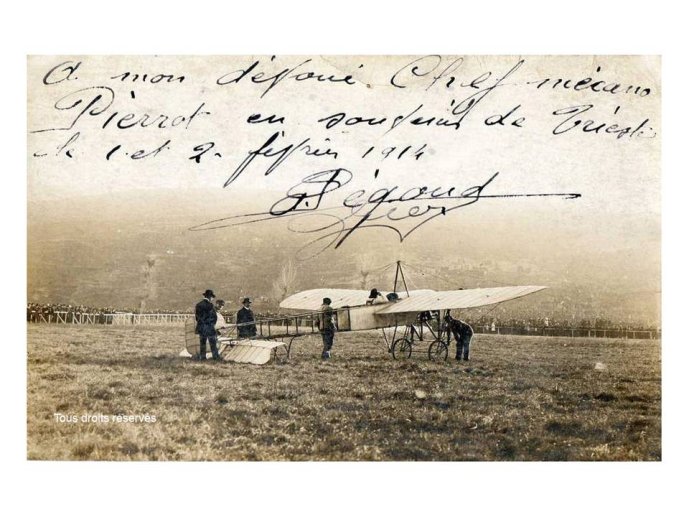 A mon dévoué Chef mécano
Pierrot en souvenir de Trieste
le 1 et 2 février 1914
Pégoud
Tous droits réservés